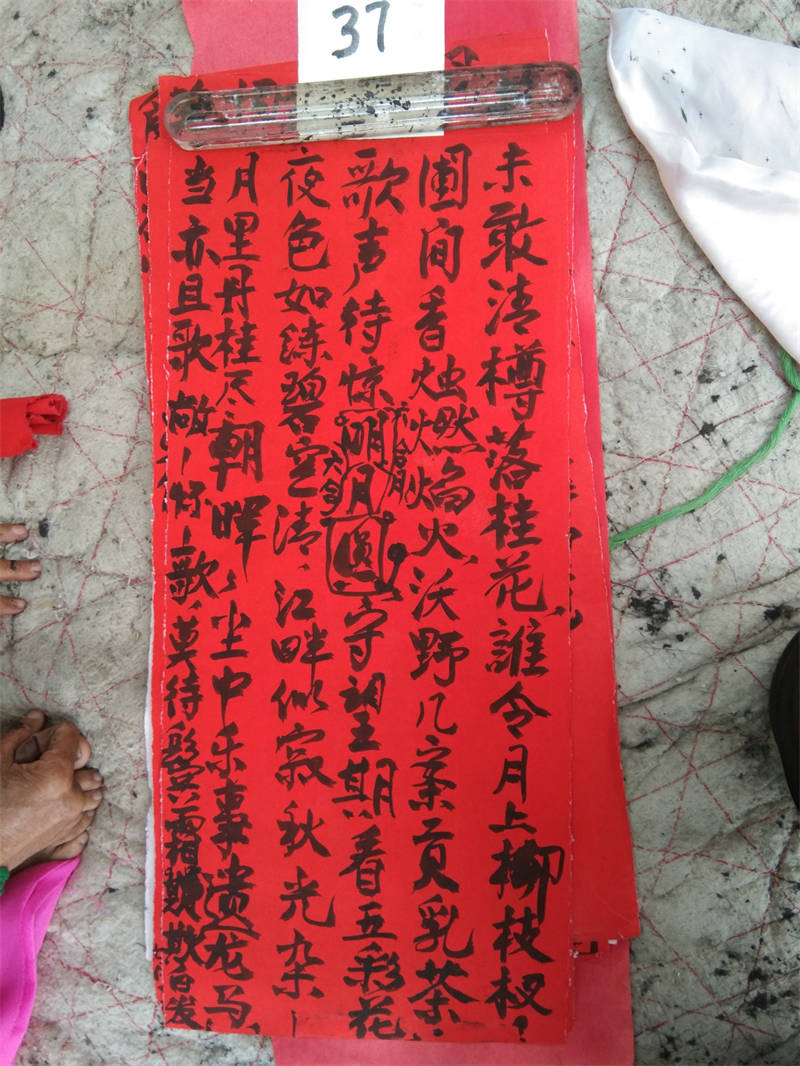 37
未敢清樽落桂花，誰令月上柳枝杈？
圃间香烛燃焰火，沃野几案贡乳茶。
歌声待惊明月圆，守望期看五彩花，
夜色如练碧空清，江畔似寂秋光杂。
月里丹桂尽朝晖，尘中乐事遗龙马，
当亦且歌，莫待鬓霜欺白发